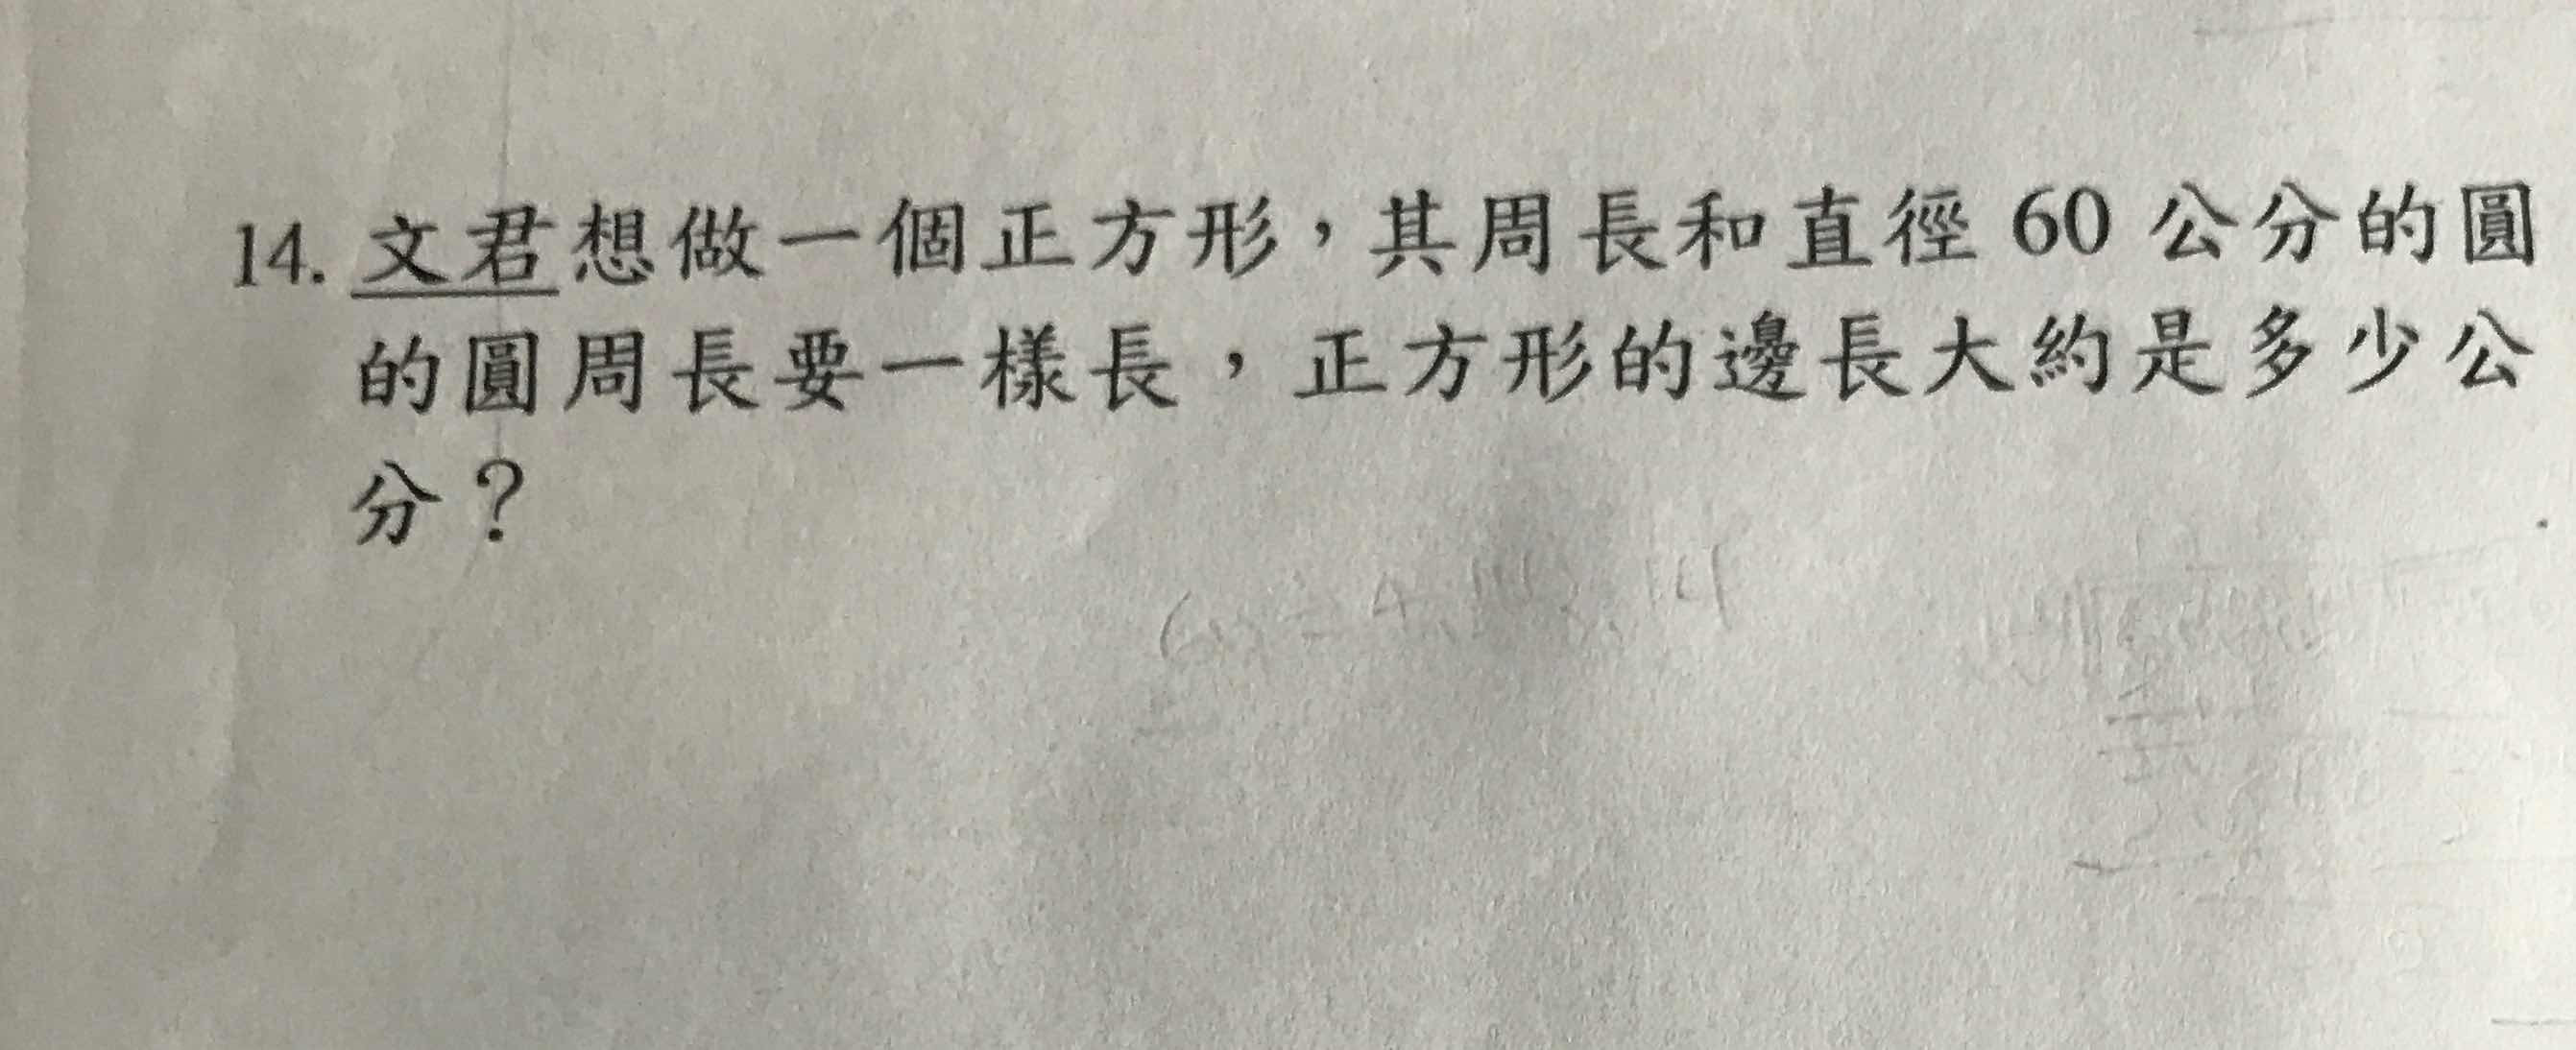 14. 文君想做一個正方形，其周長和直徑 60 公分的圓
的圓周長要一樣長，正方形的邊長大約是多少公
分？